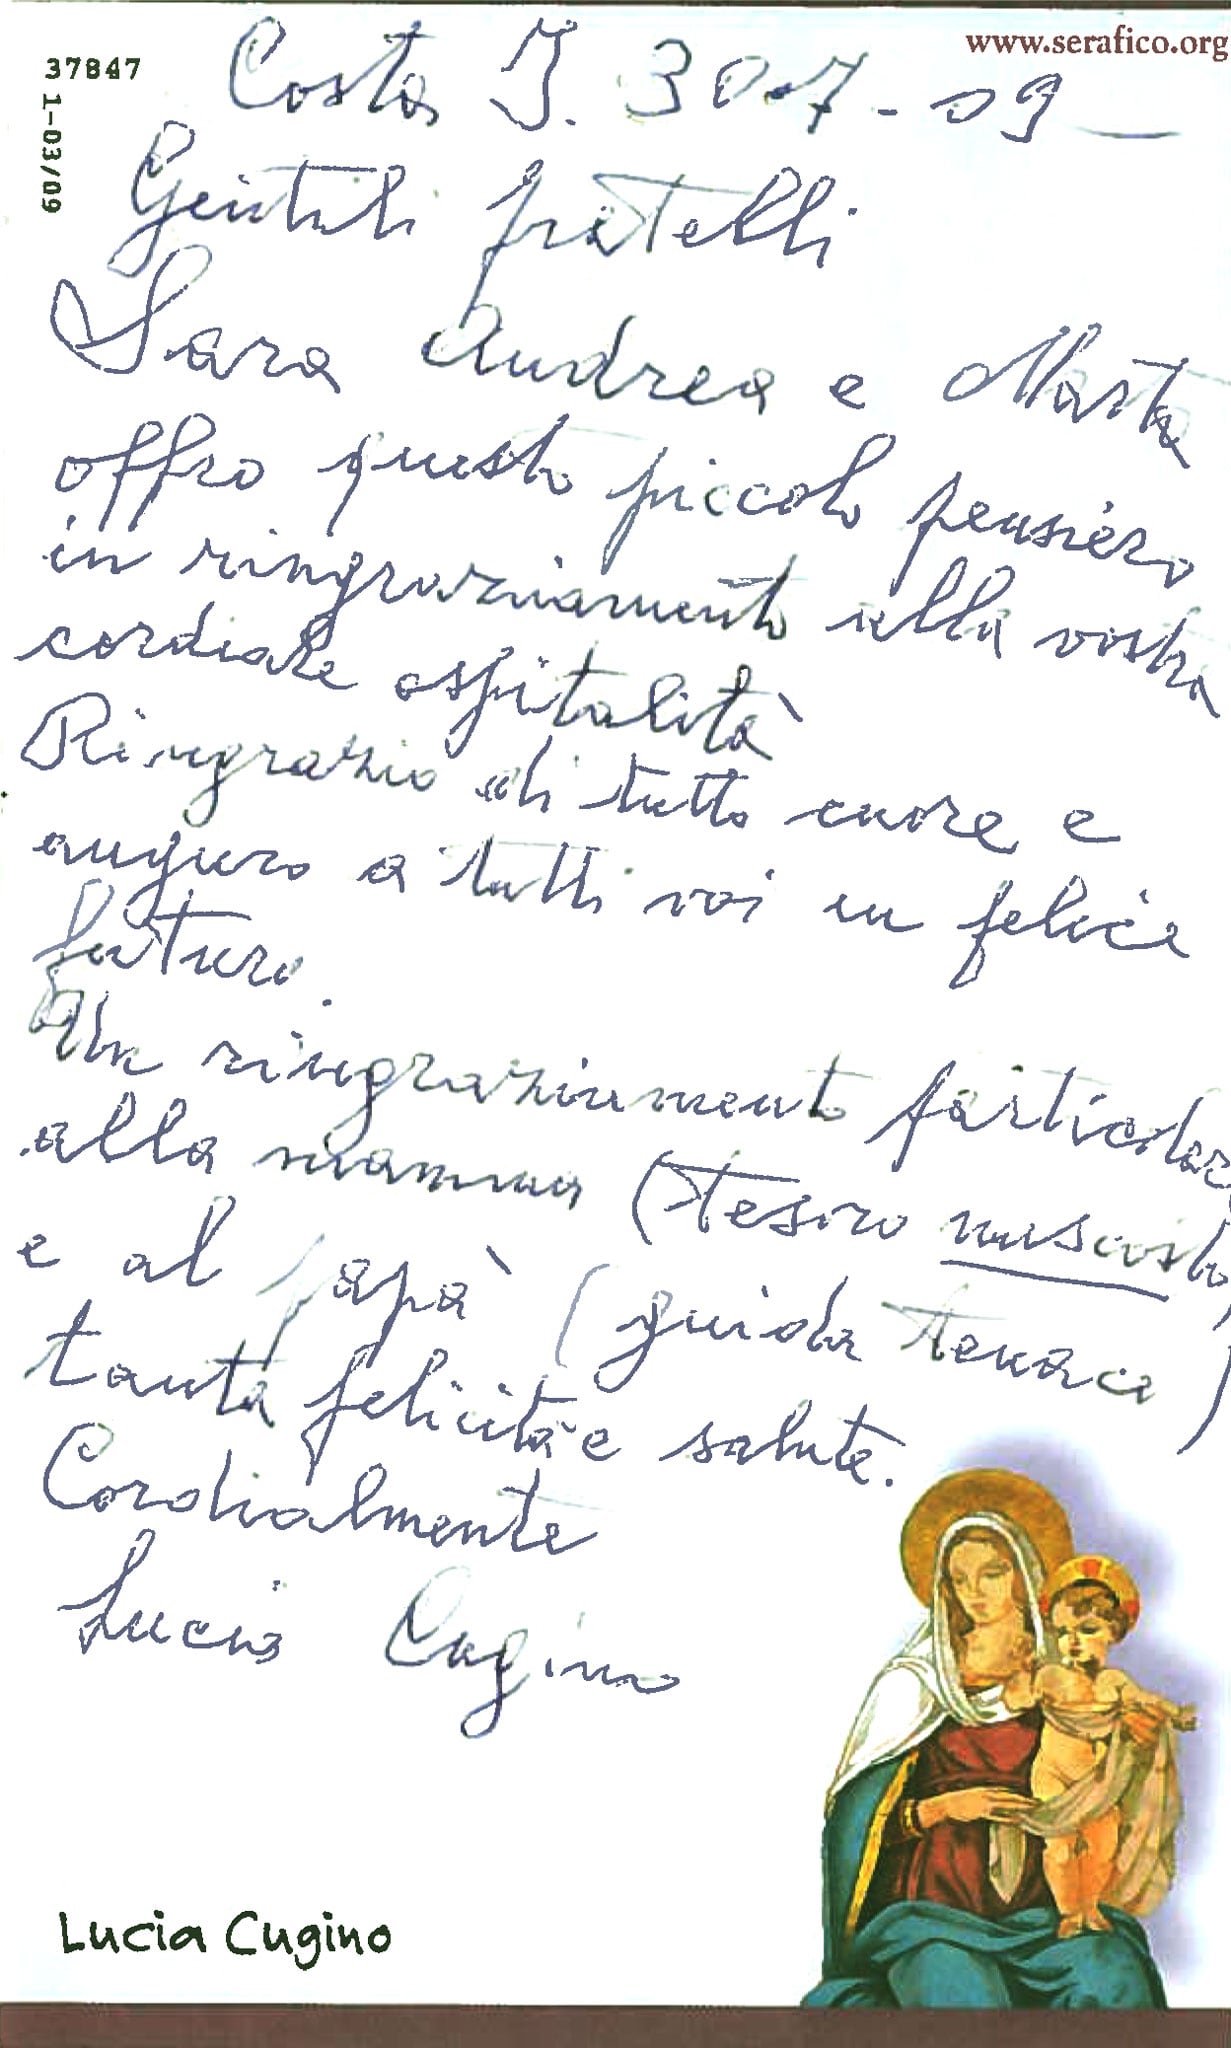 www.serafico.org
37847
1-03/09
Costa I. 30-7-09
Gentili fratelli
Sara Andrea e Marta
offro questo piccolo pensiero
in ringraziamento alla vostra
cordiale ospitalità
Ringrazio di tutto cuore e
auguro a tutti voi un felice
futuro.
Un ringraziamento particolare
alla mamma (Tesoro nascosto)
e al papà (guida tenace)
tanta felicità e salute.
Cordialmente
Lucia Cugino
Lucia Cugino